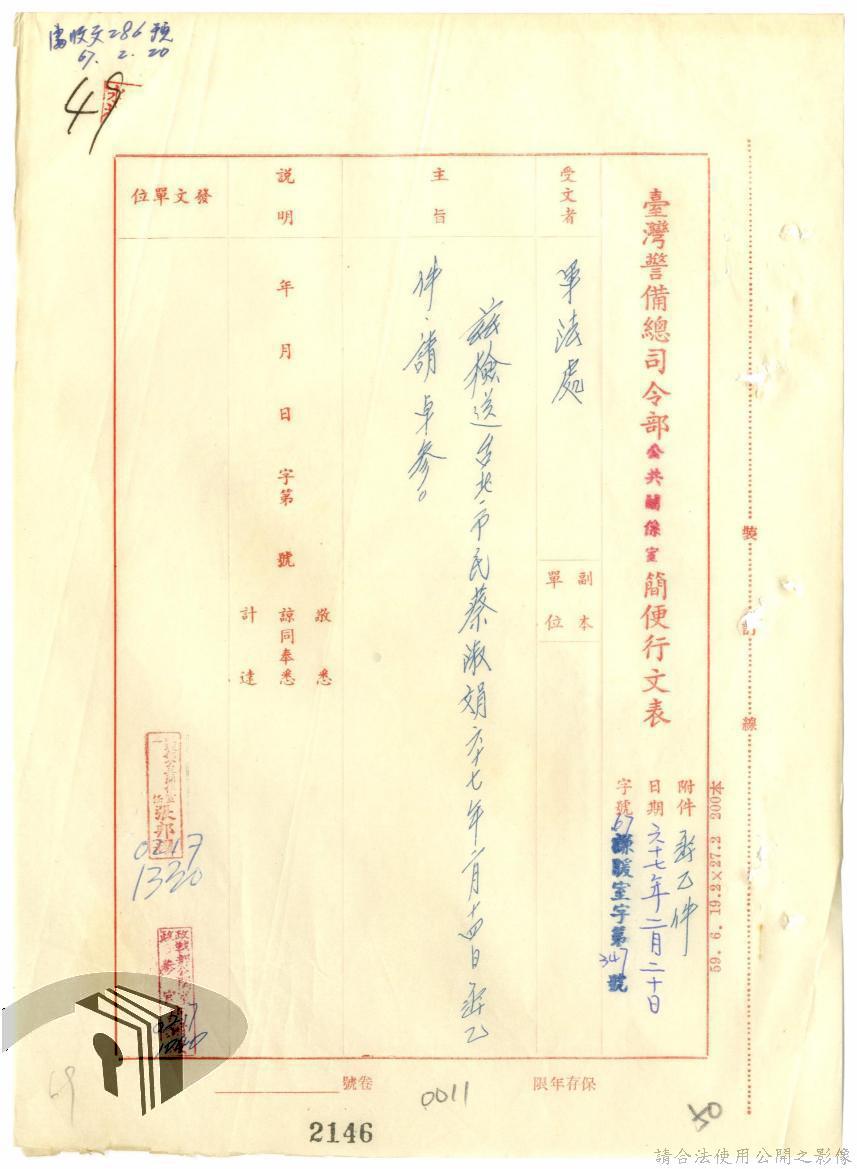 收文286號
67. 2. 20
49
臺灣警備總司令部公共關係室簡便行文表
附件
乙件
日期 六十七年二月二十日
字號 67謙暖室字第347號
受文者
軍法處
副本
單位
主旨
茲檢送台北市民蔡淑娟六十七年二月十四日函乙
件、請卓參。
說明
年 月 日 字第 號
敬悉
諒同奉悉
計達
發文單位
0217
1330
保存年限
卷號
0011
2146
69
50
裝
訂
線
59. 6. 19.2×27.2 200本
請合法使用公開之影像